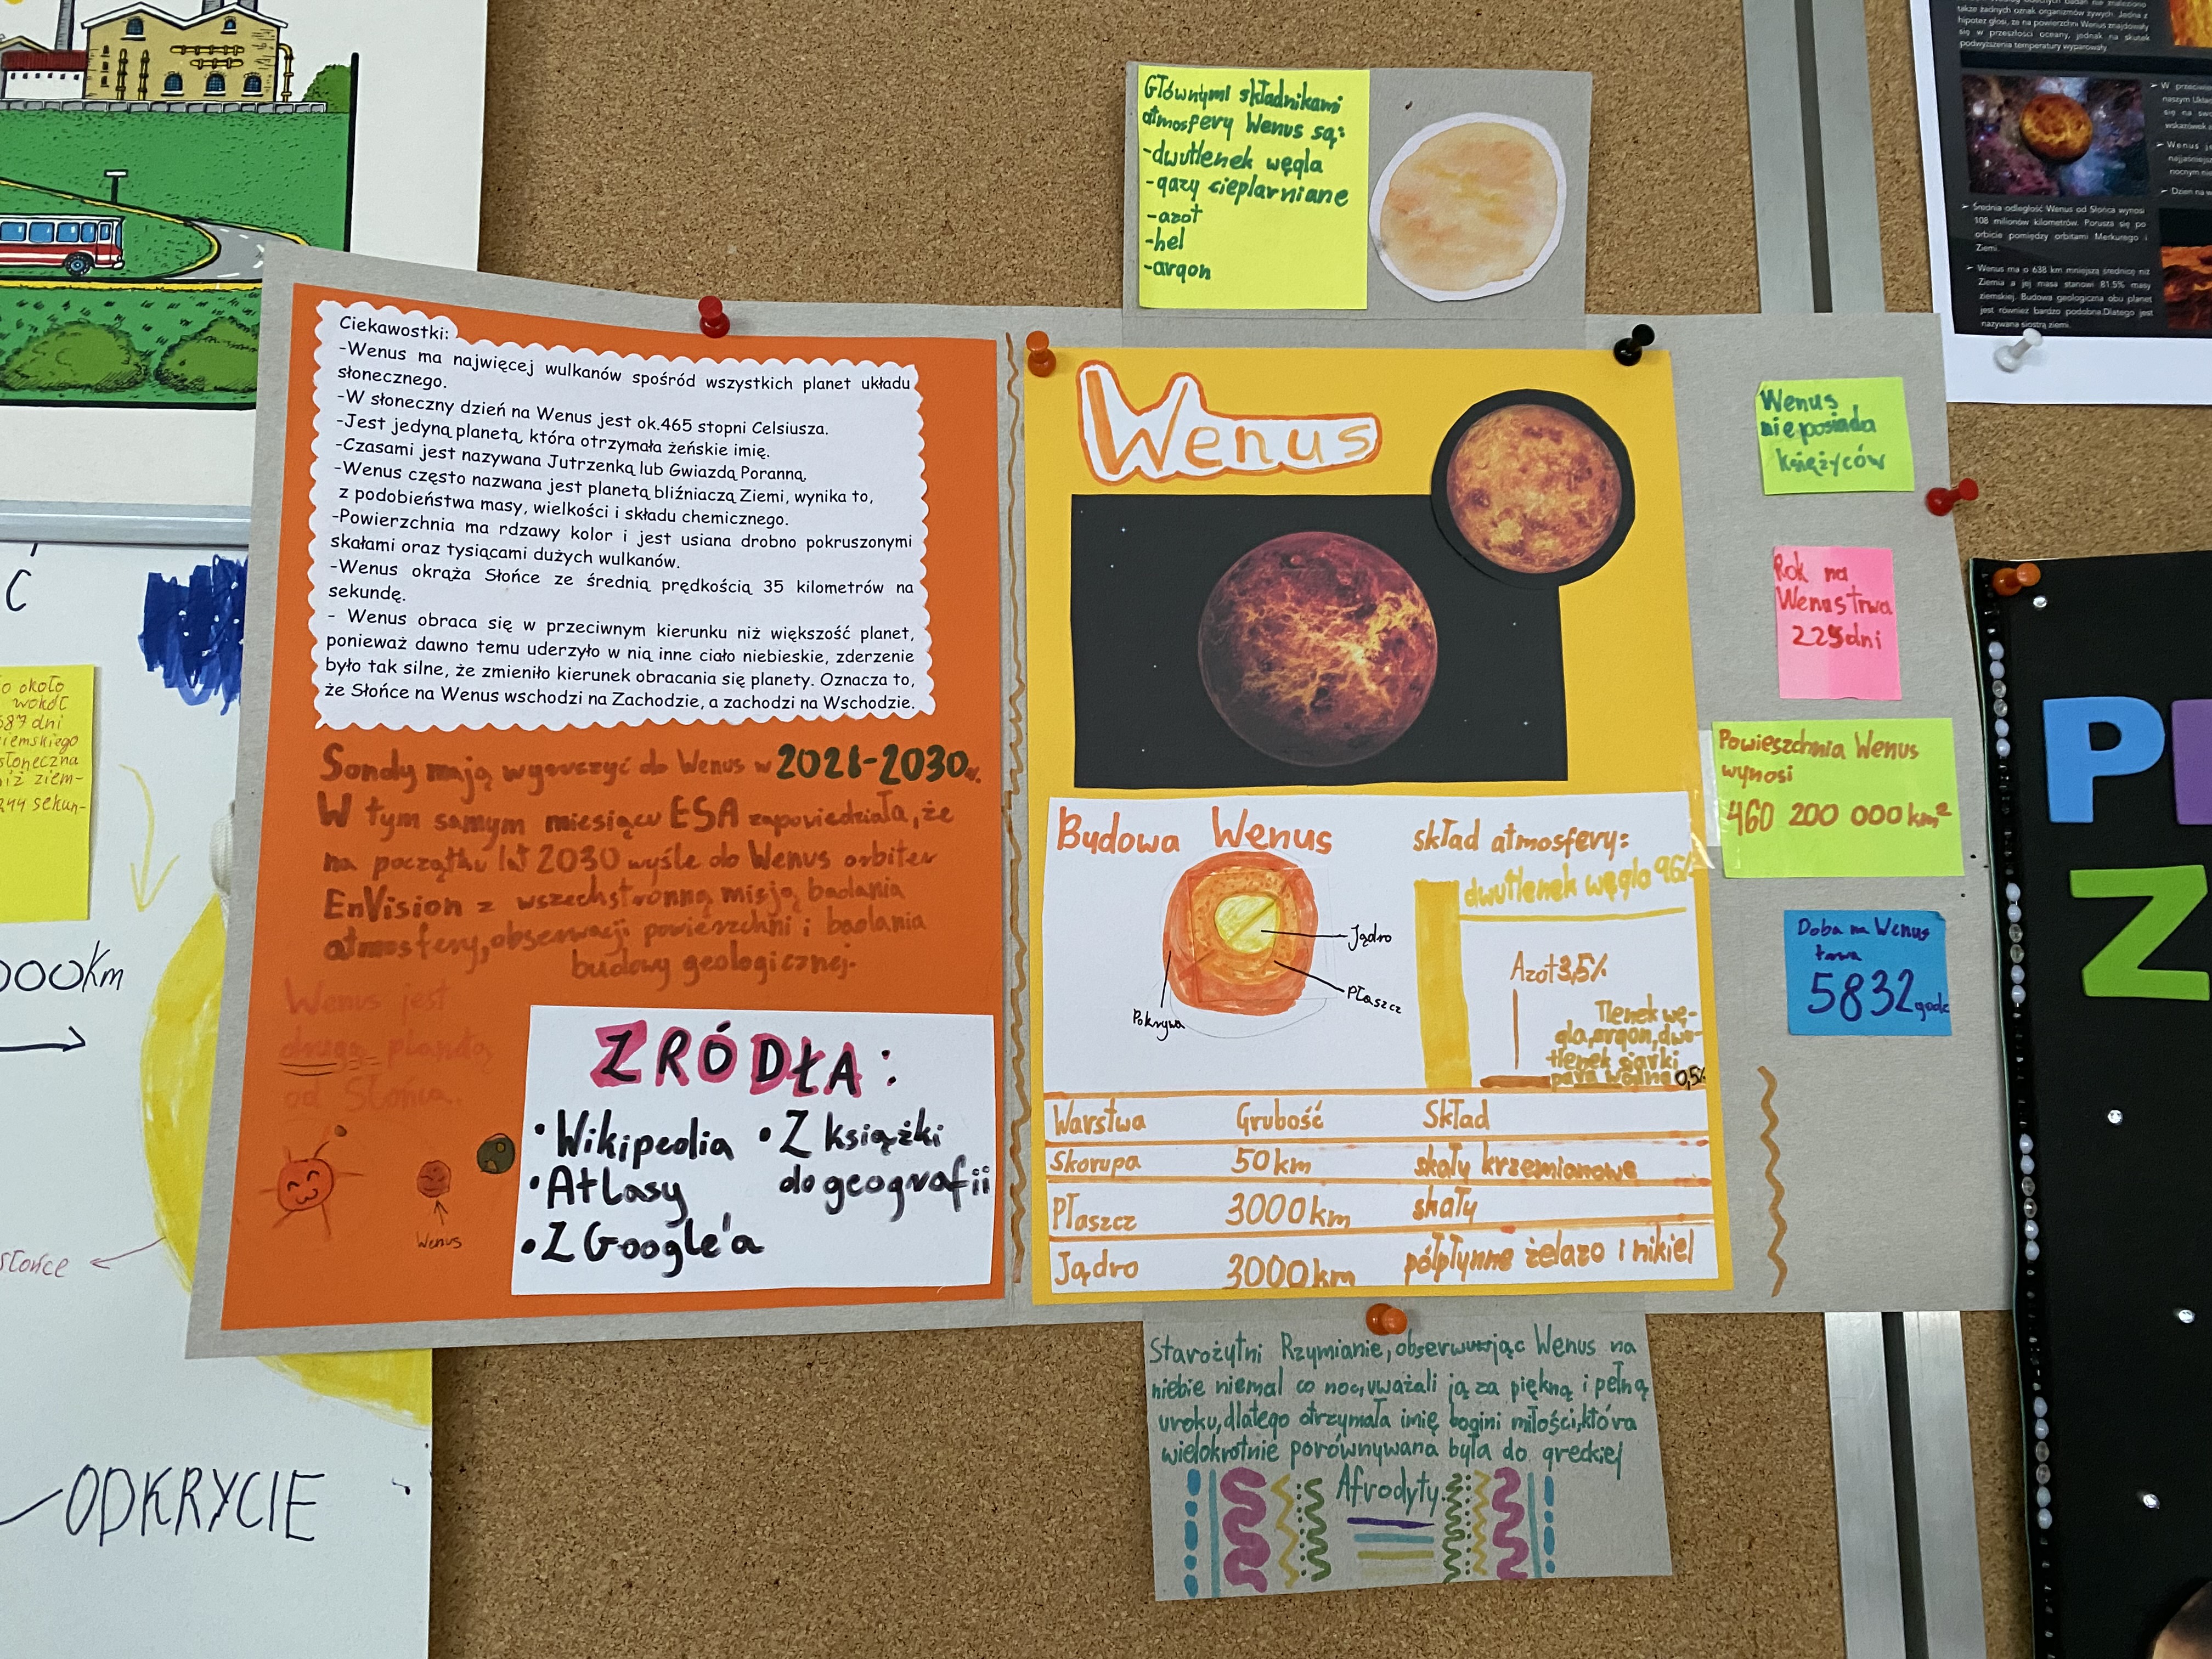 Głównymi składnikami
atmosfery Wenus są:
-dwutlenek węgla
-gazy cieplarniane
-azot
-hel
-argon
Ciekawostki:
-Wenus ma najwięcej wulkanów spośród wszystkich planet układu
słonecznego.
-W słoneczny dzień na Wenus jest ok.465 stopni Celsiusza.
-Jest jedyną planetą, która otrzymała żeńskie imię.
-Czasami jest nazywana Jutrzenką lub Gwiazdą Poranną,
-Wenus często nazwana jest planetą bliźniaczą Ziemi, wynika to,
z podobieństwa masy, wielkości i składu chemicznego.
-Powierzchnia ma rdzawy kolor i jest usiana drobno pokruszonymi
skałami oraz tysiącami dużych wulkanów.
-Wenus okrąża Słońce ze średnią prędkością 35 kilometrów na
sekundę.
- Wenus obraca się w przeciwnym kierunku niż większość planet,
ponieważ dawno temu uderzyło w nią inne ciało niebieskie, zderzenie
było tak silne, że zmieniło kierunek obracania się planety. Oznacza to,
że Słońce na Wenus wschodzi na Zachodzie, a zachodzi na Wschodzie.
Sondy mają wyruszyć do Wenus w 2028-2030r.
W tym samym miesiącu ESA zapowiedziała, że
na początku lat 2030 wyśle do Wenus orbiter
EnVision z wszechstronną misją badania
atmosfery, obserwacji powierzchni i badania
budowy geologicznej.
Wenus jest
drugą planetą
od Słońca.
Wenus
ZRÓDŁA:
• Wikipedia
• Atlasy
• Z Google'a
• Z książki
do geografii
Wenus
Budowa Wenus
Jądro
Płaszcz
Pokrywa
skład atmosfery:
dwutlenek węgla 96%
Azot 3,5%
Tlenek wę-
gla, argon, dwu-
tlenek siarki
para wodna 0,5%
Warstwa Grubość Skład
Skorupa 50km skały krzemianowe
Płaszcz 3000km skały
Jądro 3000km półpłynne żelazo i nikiel
Wenus
nie posiada
księżyców
Rok na
Wenus trwa
225dni
Powieszchnia Wenus
wynosi
460 200 000km²
Doba na Wenus
trwa
5832godz
Starożytni Rzymianie, obserwując Wenus na
niebie niemal co noc, uważali ją za piękną i pełną
uroku, dlatego otrzymała imię bogini miłości, która
wielokrotnie porównywana była do greckiej
Afrodyty.
także żadnych oznak organizmów żywych. Jedna z
hipotez głosi, że na powierzchni Wenus znajdowały
się w przeszłości oceany, jednak na skutek
podwyższenia temperatury wyparowały.
➢ Średnia odległość Wenus od Słońca wynosi
108 milionów kilometrów. Porusza się po
orbicie pomiędzy orbitami Merkurego i
Ziemi.
➢ Wenus ma o 638 km mniejszą średnicę niż
Ziemia a jej masa stanowi 81.5% masy
ziemskiej. Budowa geologiczna obu planet
jest również bardzo podobna.Dlatego jest
nazywana siostrą ziemi.
P
Z
Ć
o około
687 dni
iemskiego
słoneczna
niż ziem-
244 sekun-
000km
słońce
ODKRYCIE